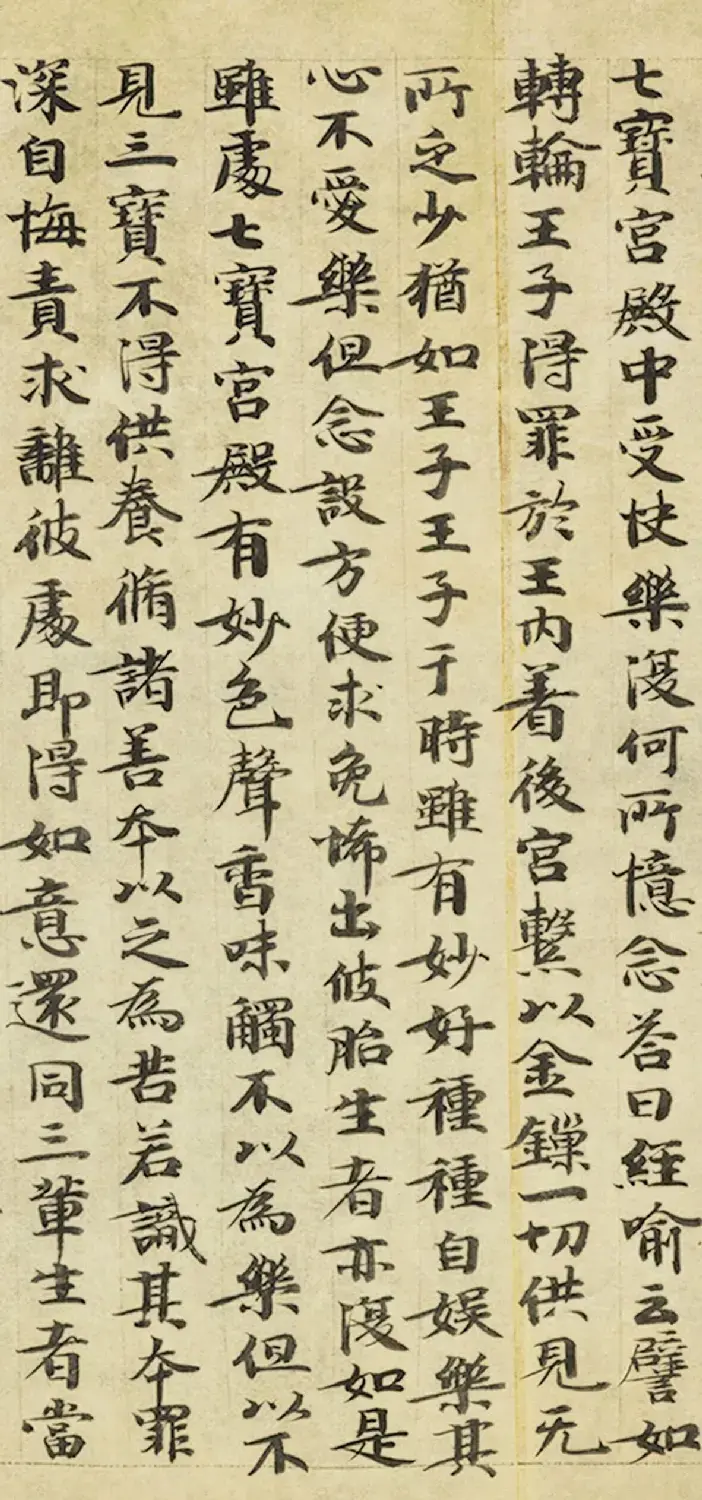 七寶宮殿中受快樂復何所憶念荅曰經喻云譬如
轉輪王子得罪於王內著後宮繫以金鏁一切供具无
所乏少猶如王子王子于時雖有妙好種種自娛樂其
心不愛樂但念設方便求免怖出彼胎生者亦復如是
雖處七寶宮殿有妙色聲香味觸不以為樂但以不
見三寶不得供養脩諸善本以之為苦若識其本罪
深自悔責求離彼處即得如意還同三輩生者當